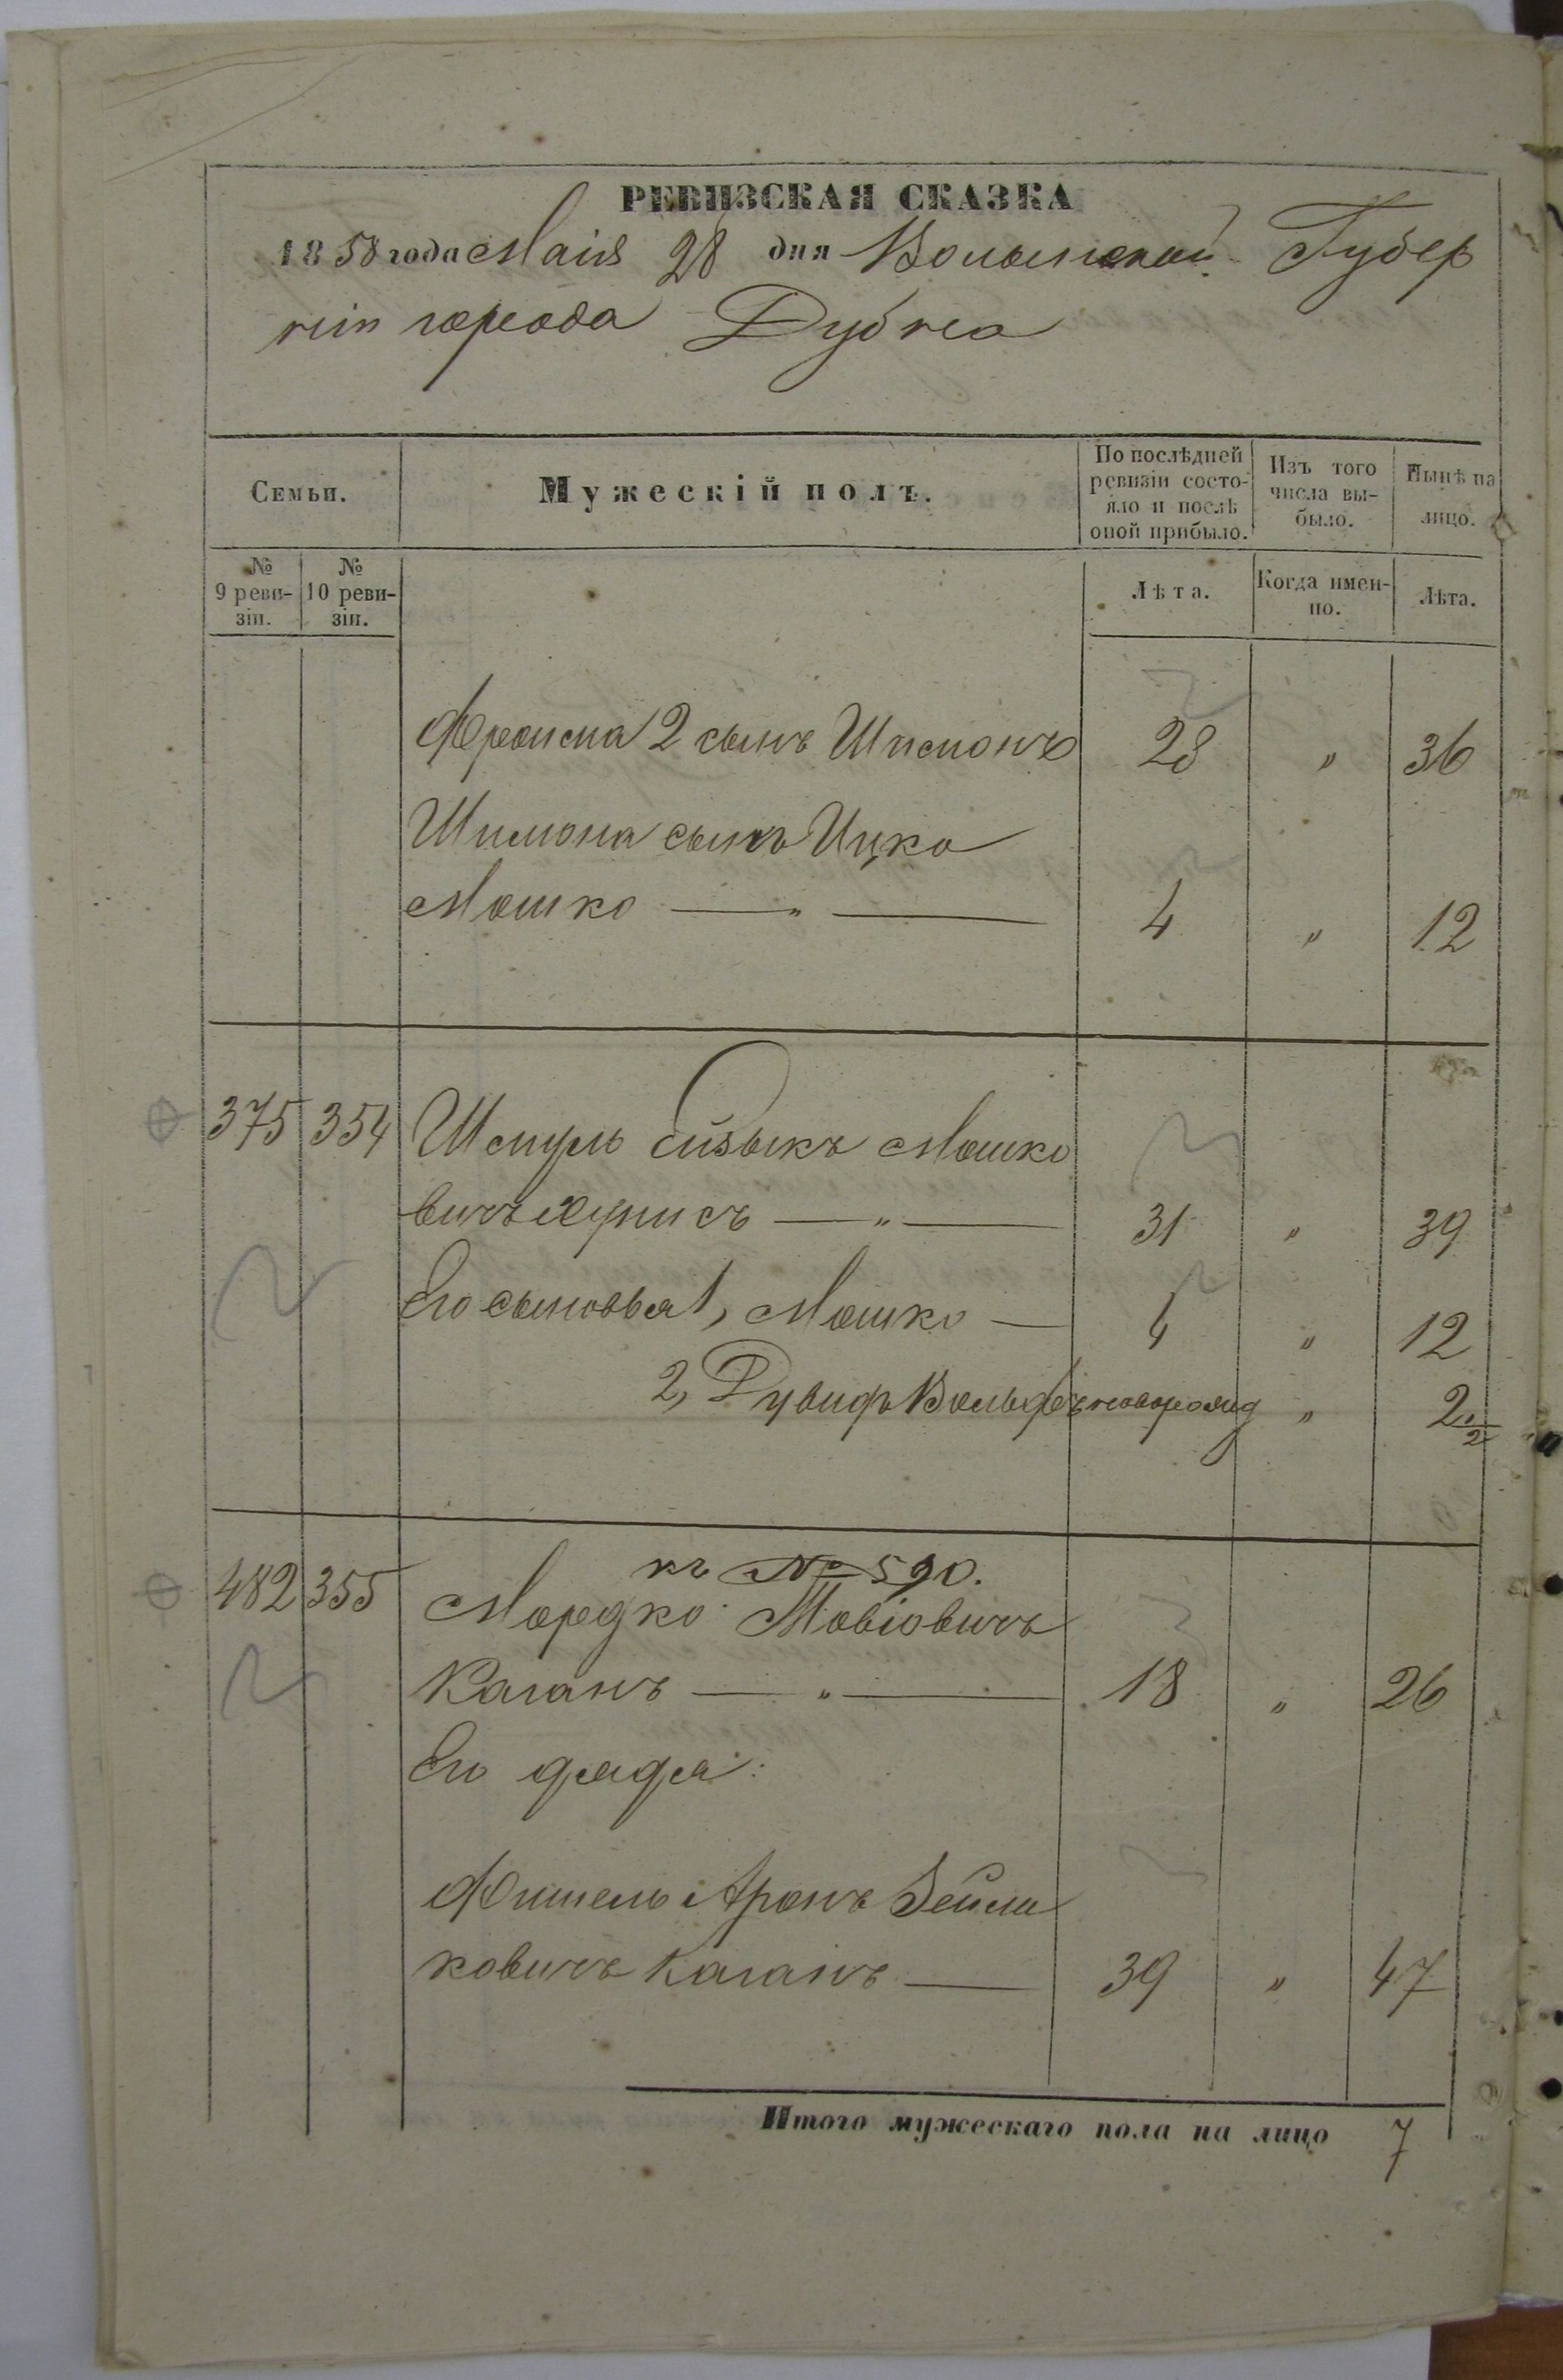 РЕВИЗСКАЯ СКАЗКА
1858 года Маія 28 дня Волынской Губер
ніи города Дубна
Семьи.
Мужескій полъ.
По послѣдней ревизіи состо-
яло и послѣ
оной прибыло.
Изъ того
числа вы-
было.
Нынѣ на
лицо.
№
9 реви-
зіи.
№
10 реви-
зіи.
Лѣта.
Когда имен-
но.
Лѣта.
Фроима 2 сынъ Шимонъ 28 " 36
Шимона сынъ Ицко
Мошко — " — 4 " 12
375 354 Шмуль Айзыкъ Мошко
вичъ — " — 31 " 39
Его сыновья 1, Мошко — 4 " 12
2, Дувидъ Вольфъ новорожд " 2 1/2
къ № 590.
482 355 Мордко Товіовичъ
Каганъ — " — 18 " 26
Его дядя:
Фишель Аронъ Зейли
ковичъ Каганъ — 39 " 47
Итого мужескаго пола на лицо 7